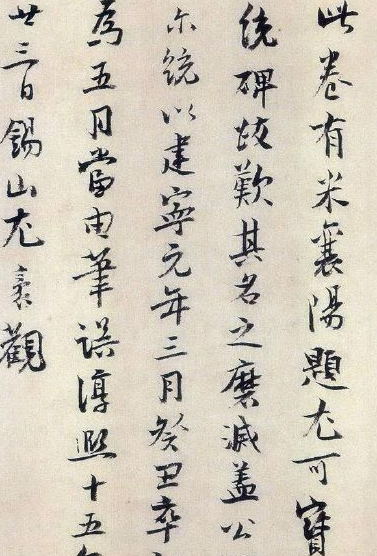 此卷有米襄陽題尤可寶
統碑故歎其名之磨滅蓋公
尔統以建寧元年三月癸丑卒
為五月當由筆誤淳熙十五年
廿三日錫山尤袤觀